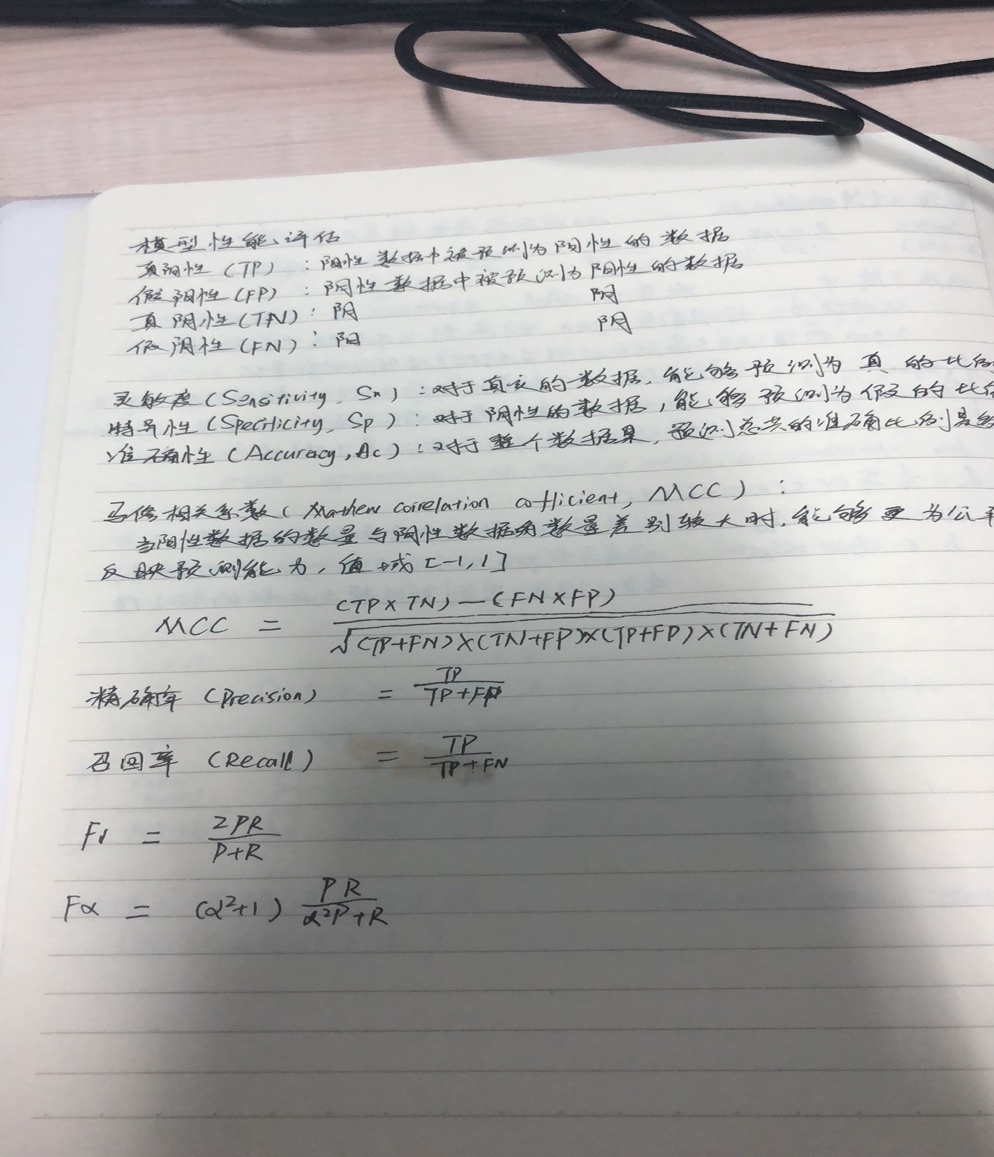 模型性能评估
真阳性(TP):阳性数据中被预测为阳性的数据
假阳性(FP):阴性数据中被预测为阳性的数据
真阴性(TN):阴 阴
假阴性(FN):阳 阴
灵敏度(Sensitivity, Sn):对于真实的数据,能够预测为真的比
特异性(Specificity, Sp):对于阴性的数据,能够预测为假的比
准确性(Accuracy, Ac):对于整个数据集,预测总共的准确比例是
马修相关系数(Mathew correlation cofficient, MCC):
当阳性数据的数量与阴性数据的数量差别较大时,能够更为公平
反映预测能力,值域[-1,1]
MCC = (TP×TN)-(FN×FP) / √(TP+FN)×(TN+FP)×(TP+FP)×(TN+FN)
精确率(Precision) = TP / TP+FP
召回率(Recall) = TP / TP+FN
F1 = 2PR / P+R
Fα = (α²+1) PR / α²P+R